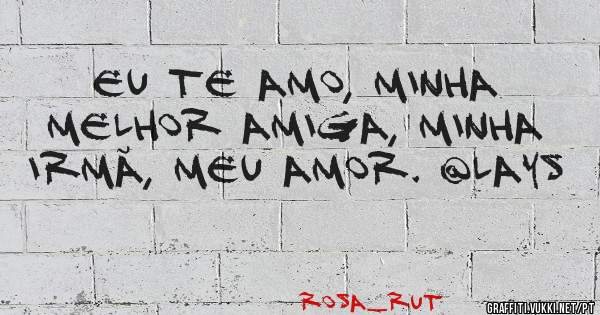 EU TE AMO, MINHA
MELHOR AMIGA, MINHA
IRMÃ, MEU AMOR. @LAYS
ROSA_RUT
GRAFFITI.VUKKI.NET/PT